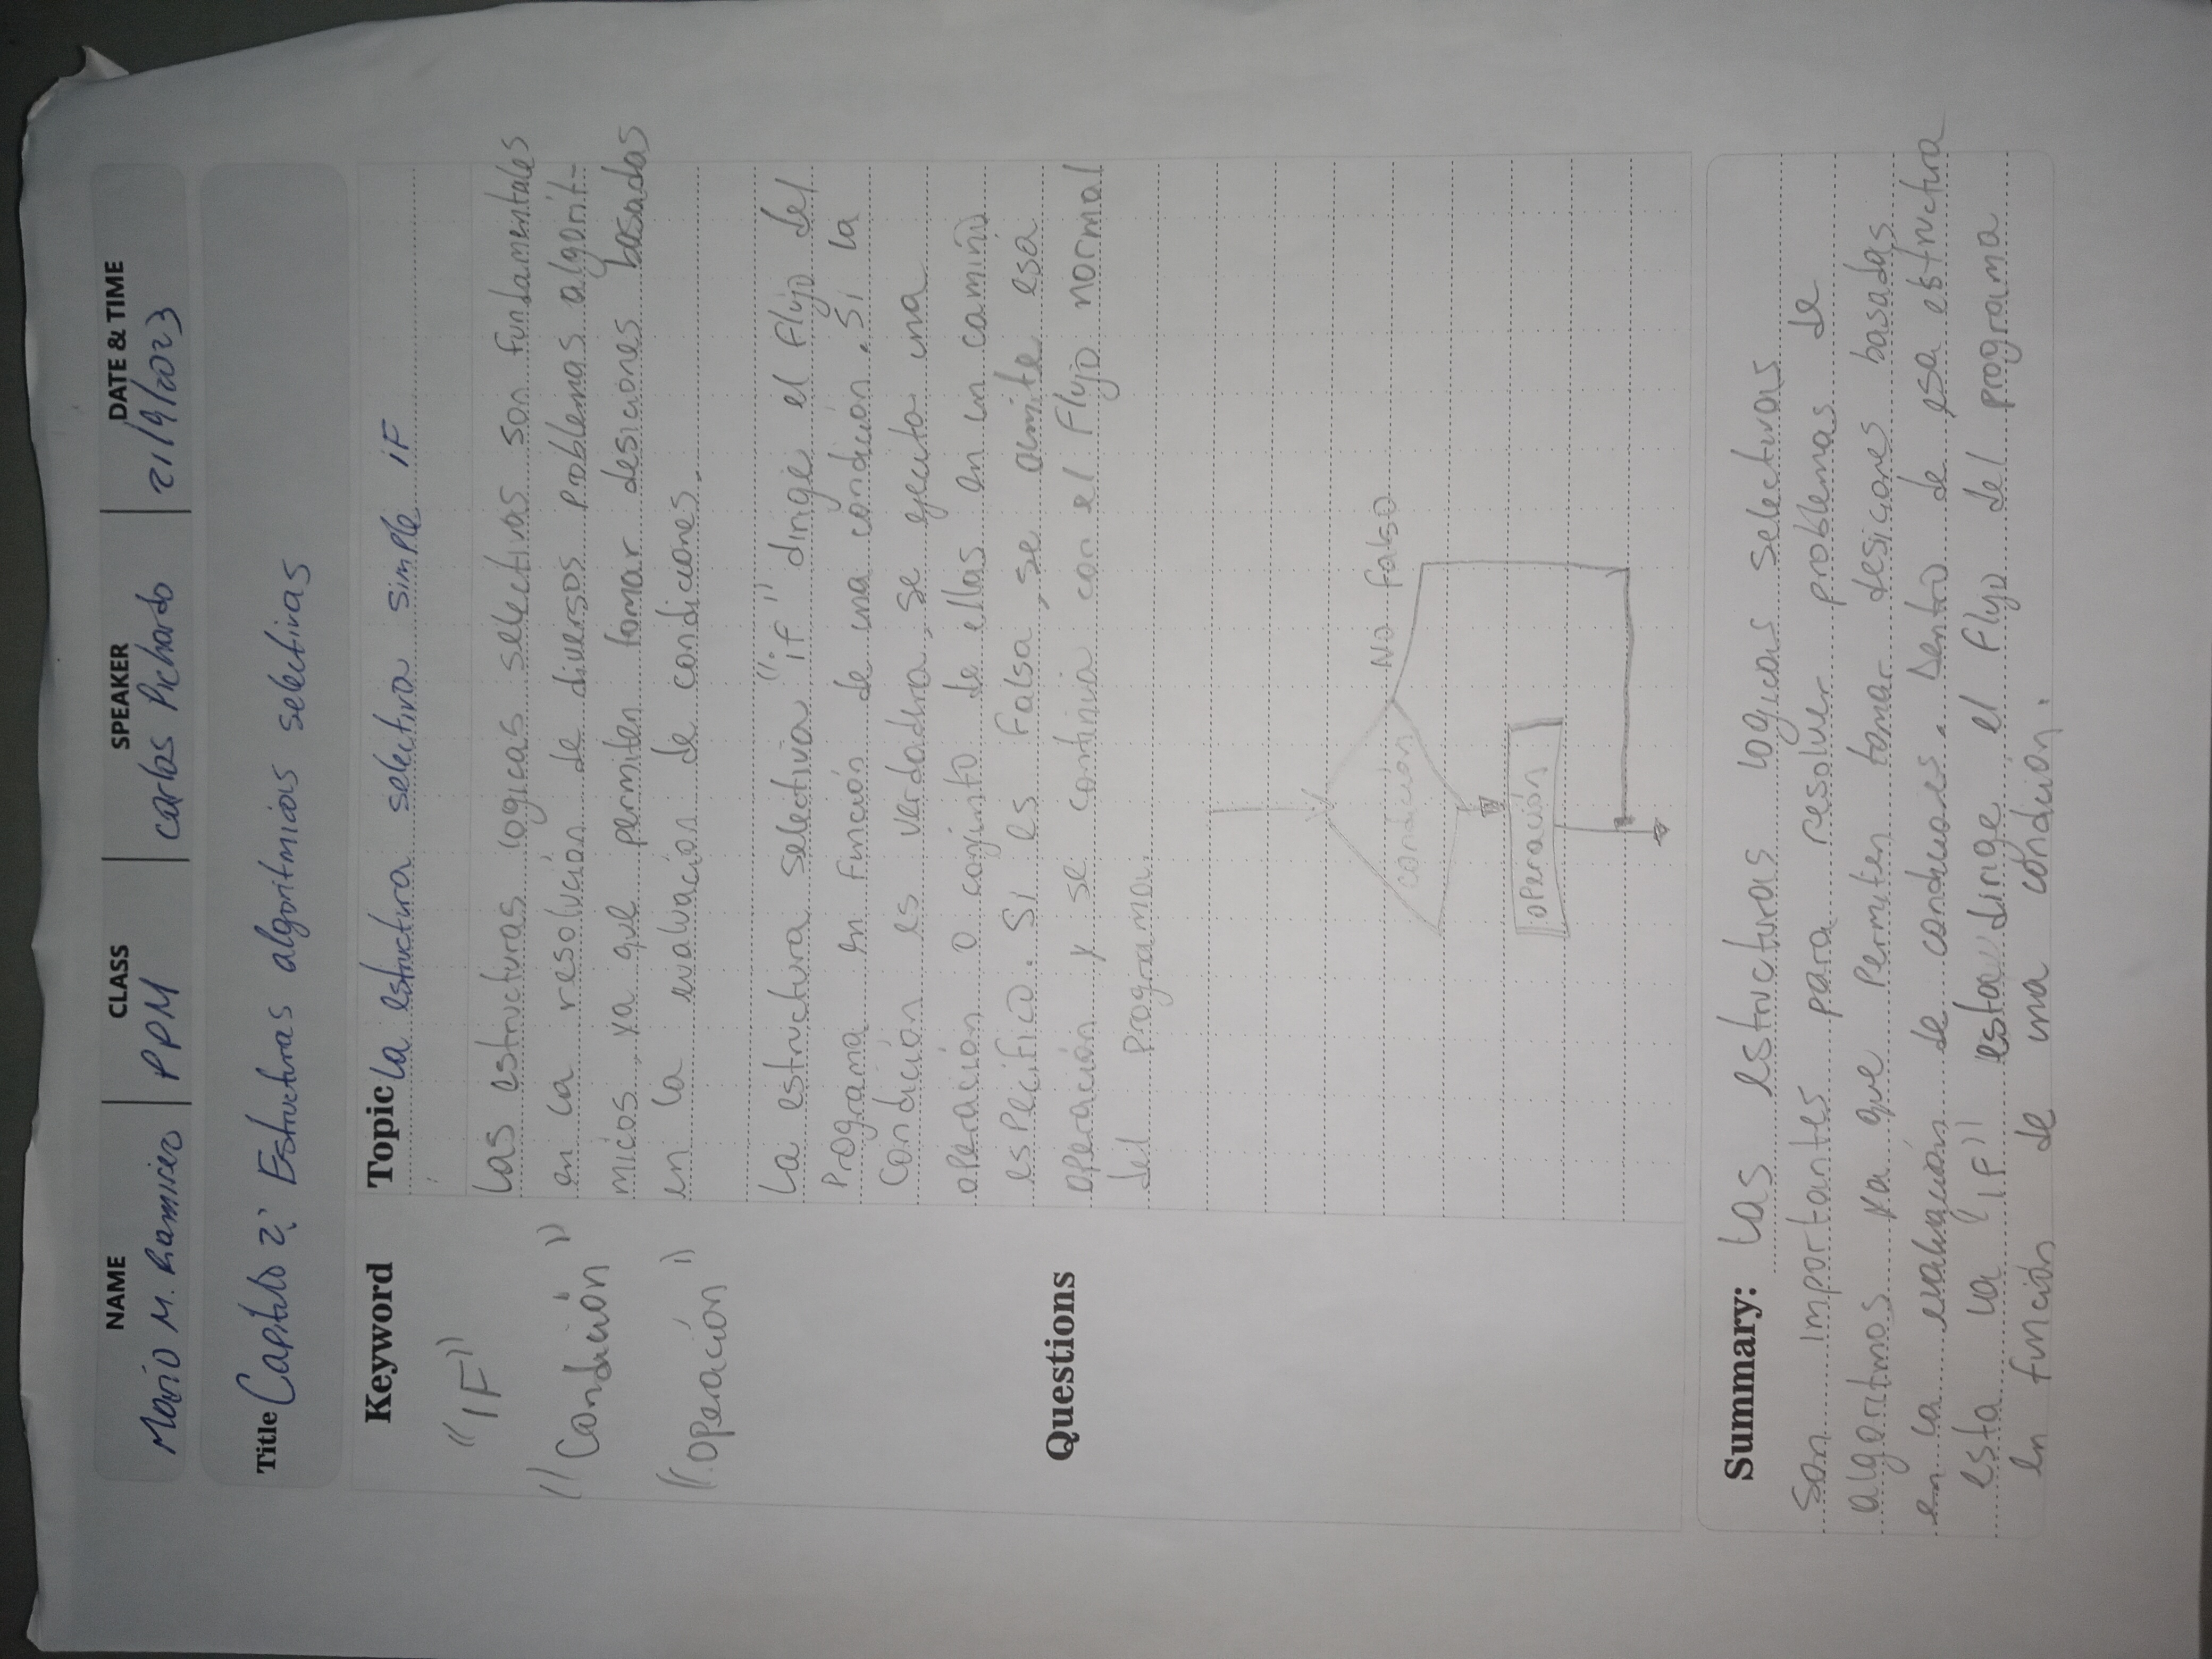 NAME
CLASS
SPEAKER
DATE & TIME
Mario M. Ramirez
PPM
Carlos Pichardo
21/9/2023
Title Capitulo 2: Estructuras algoritmicas selectivas
Keyword
"IF"
"Condición"
"Operación"
Questions
Topic La estructura selectiva simple IF
Las estructuras logicas selectivas son fundamentales
en la resolución de diversos problemas algorit-
micos, ya que permiten tomar desiciones basadas
en la evaluación de condiciones.
La estructura selectiva "if" dirige el flujo del
Programa en función de una condición. Si la
Condición es verdadera, se ejecuta una
operación o conjunto de ellas en un camino
especifico. Si es falsa, se omite esa
operación y se continua con el flujo normal
del Programa.
No falso
condición
operación
Summary: Las estructuras logicas selectivas
son importantes para resolver problemas de
algoritmos ya que Permiten tomar desiciones basadas
en la evaluación de condiciones. Dentro de esa estructura
esta la "IF" esta dirige el flujo del programa
en función de una condición.